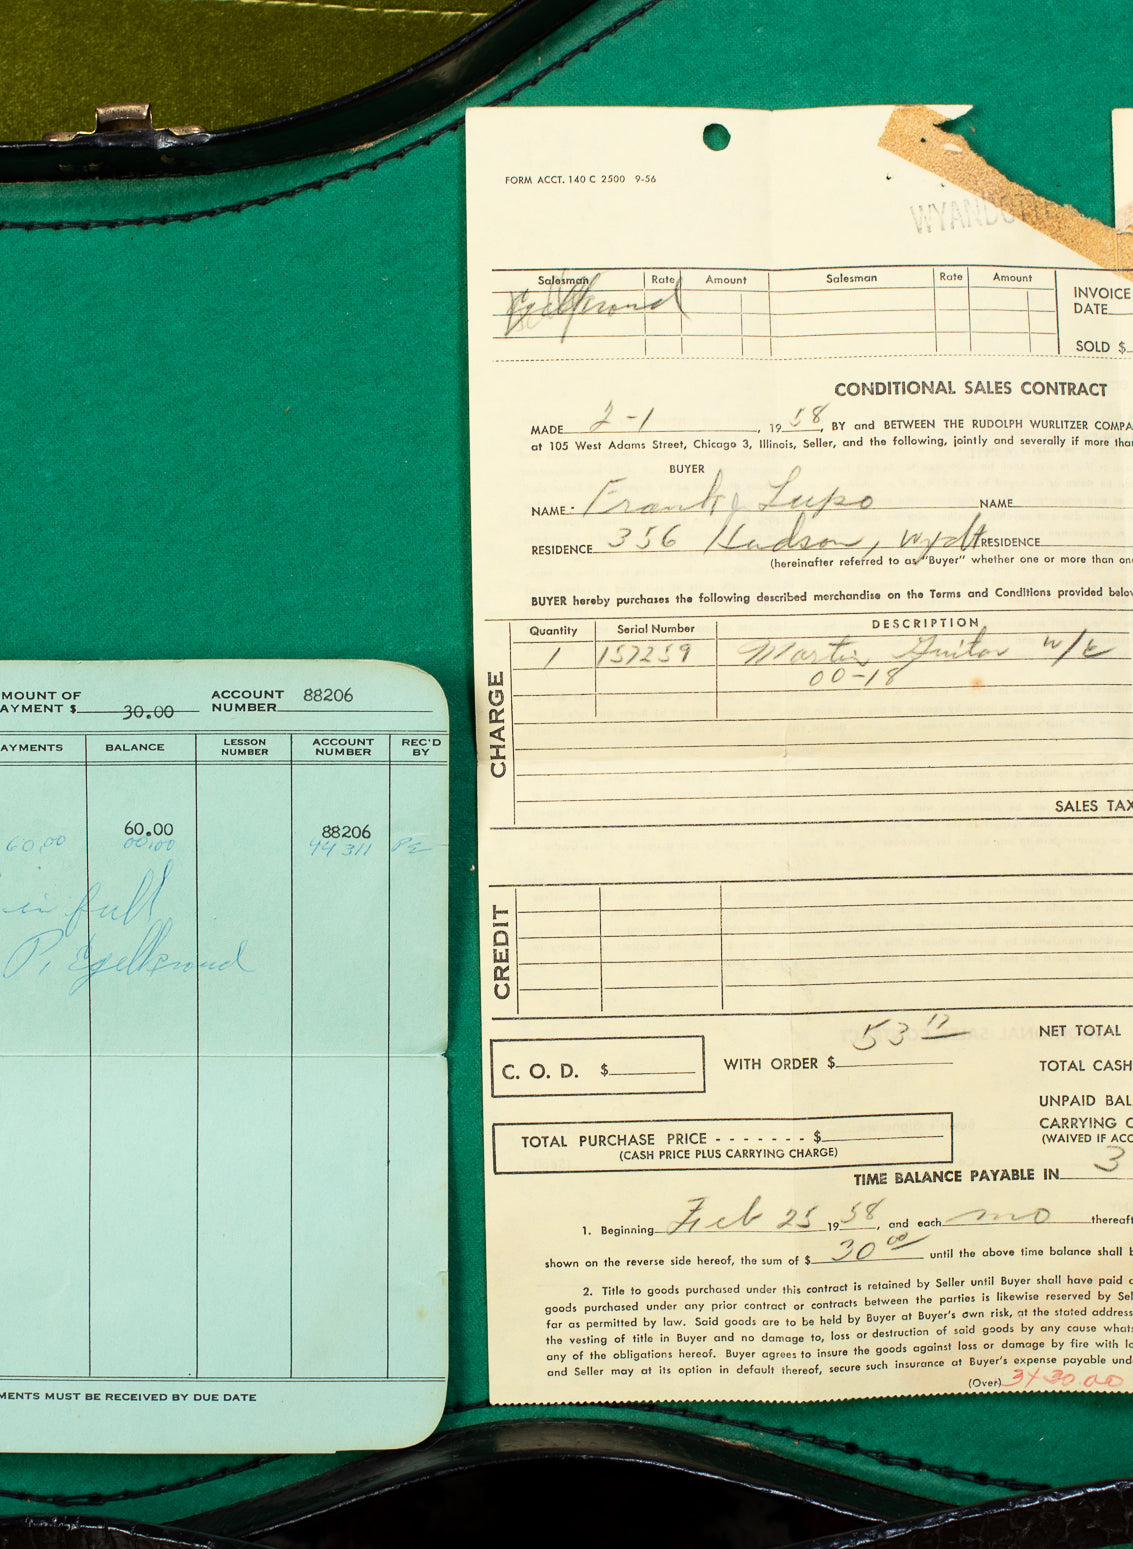 MOUNT OF
AYMENT $ 30.00
ACCOUNT
NUMBER 88206
AYMENTS BALANCE LESSON NUMBER ACCOUNT NUMBER REC'D BY
60.00 88206
60.00 00.00 94311 PE
in full
P. Egelkroud
MENTS MUST BE RECEIVED BY DUE DATE
FORM ACCT. 140 C 2500 9-56
WYANDOTTE
Salesman Rate Amount Salesman Rate Amount
Egelkroud
INVOICE
DATE
SOLD $
CONDITIONAL SALES CONTRACT
MADE 2-1, 1958, BY and BETWEEN THE RUDOLPH WURLITZER COMPA
at 105 West Adams Street, Chicago 3, Illinois, Seller, and the following, jointly and severally if more than
BUYER
NAME Frank J Lupo NAME
RESIDENCE 356 Hudson, Wydt RESIDENCE
(hereinafter referred to as "Buyer" whether one or more than one
BUYER hereby purchases the following described merchandise on the Terms and Conditions provided below
CHARGE
Quantity Serial Number DESCRIPTION
1 157259 Martin Guitar w/c
00-18
SALES TAX
CREDIT
C. O. D. $
WITH ORDER $ 53 17
NET TOTAL
TOTAL CASH
UNPAID BAL
CARRYING C
(WAIVED IF ACC
TOTAL PURCHASE PRICE - - - - - - - $
(CASH PRICE PLUS CARRYING CHARGE)
TIME BALANCE PAYABLE IN 3
1. Beginning Feb 25 1958, and each mo thereaft
shown on the reverse side hereof, the sum of $ 30 00 until the above time balance shall b
2. Title to goods purchased under this contract is retained by Seller until Buyer shall have paid
goods purchased under any prior contract or contracts between the parties is likewise reserved by Sel
far as permitted by law. Said goods are to be held by Buyer at Buyer's own risk, at the stated address
the vesting of title in Buyer and no damage to, loss or destruction of said goods by any cause whats
any of the obligations hereof. Buyer agrees to insure the goods against loss or damage by fire with lo
and Seller may at its option in default thereof, secure such insurance at Buyer's expense payable und
(Over) 3X30.00